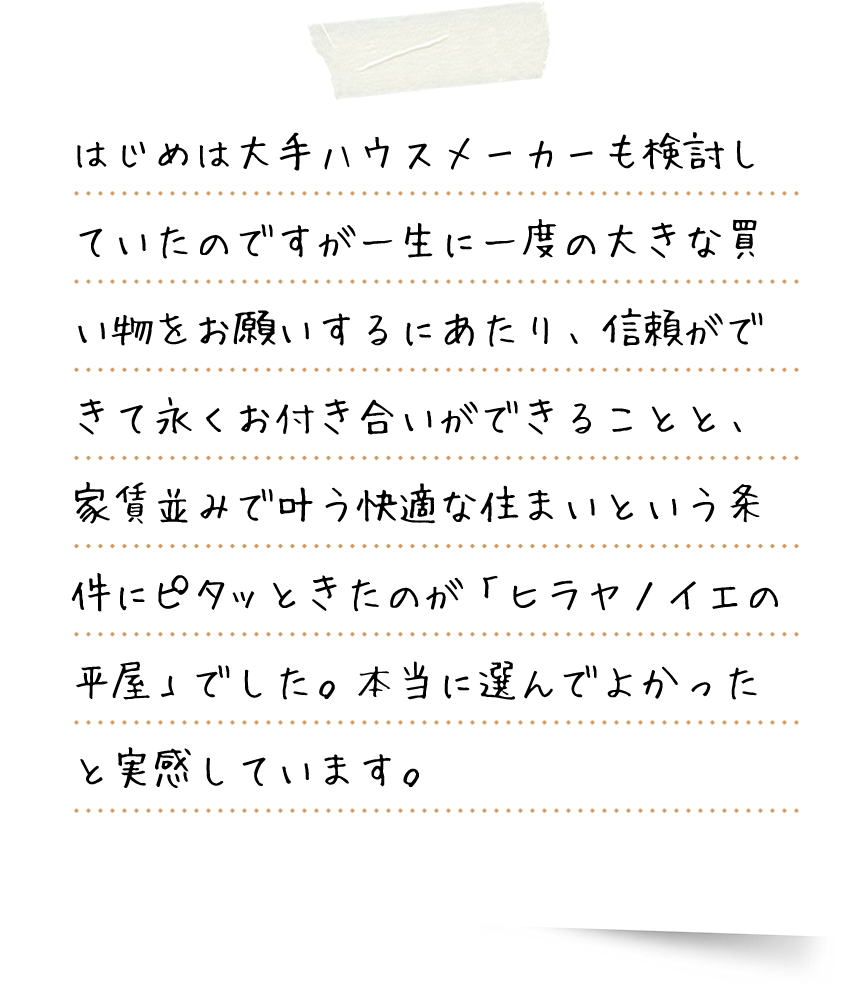 はじめは大手ハウスメーカーも検討し
ていたのですが一生に一度の大きな買
い物をお願いするにあたり、信頼がで
きて永くお付き合いができることと、
家賃並みで叶う快適な住まいという条
件にピタッときたのが「ヒラヤノイエの
平屋」でした。本当に選んでよかった
と実感しています。